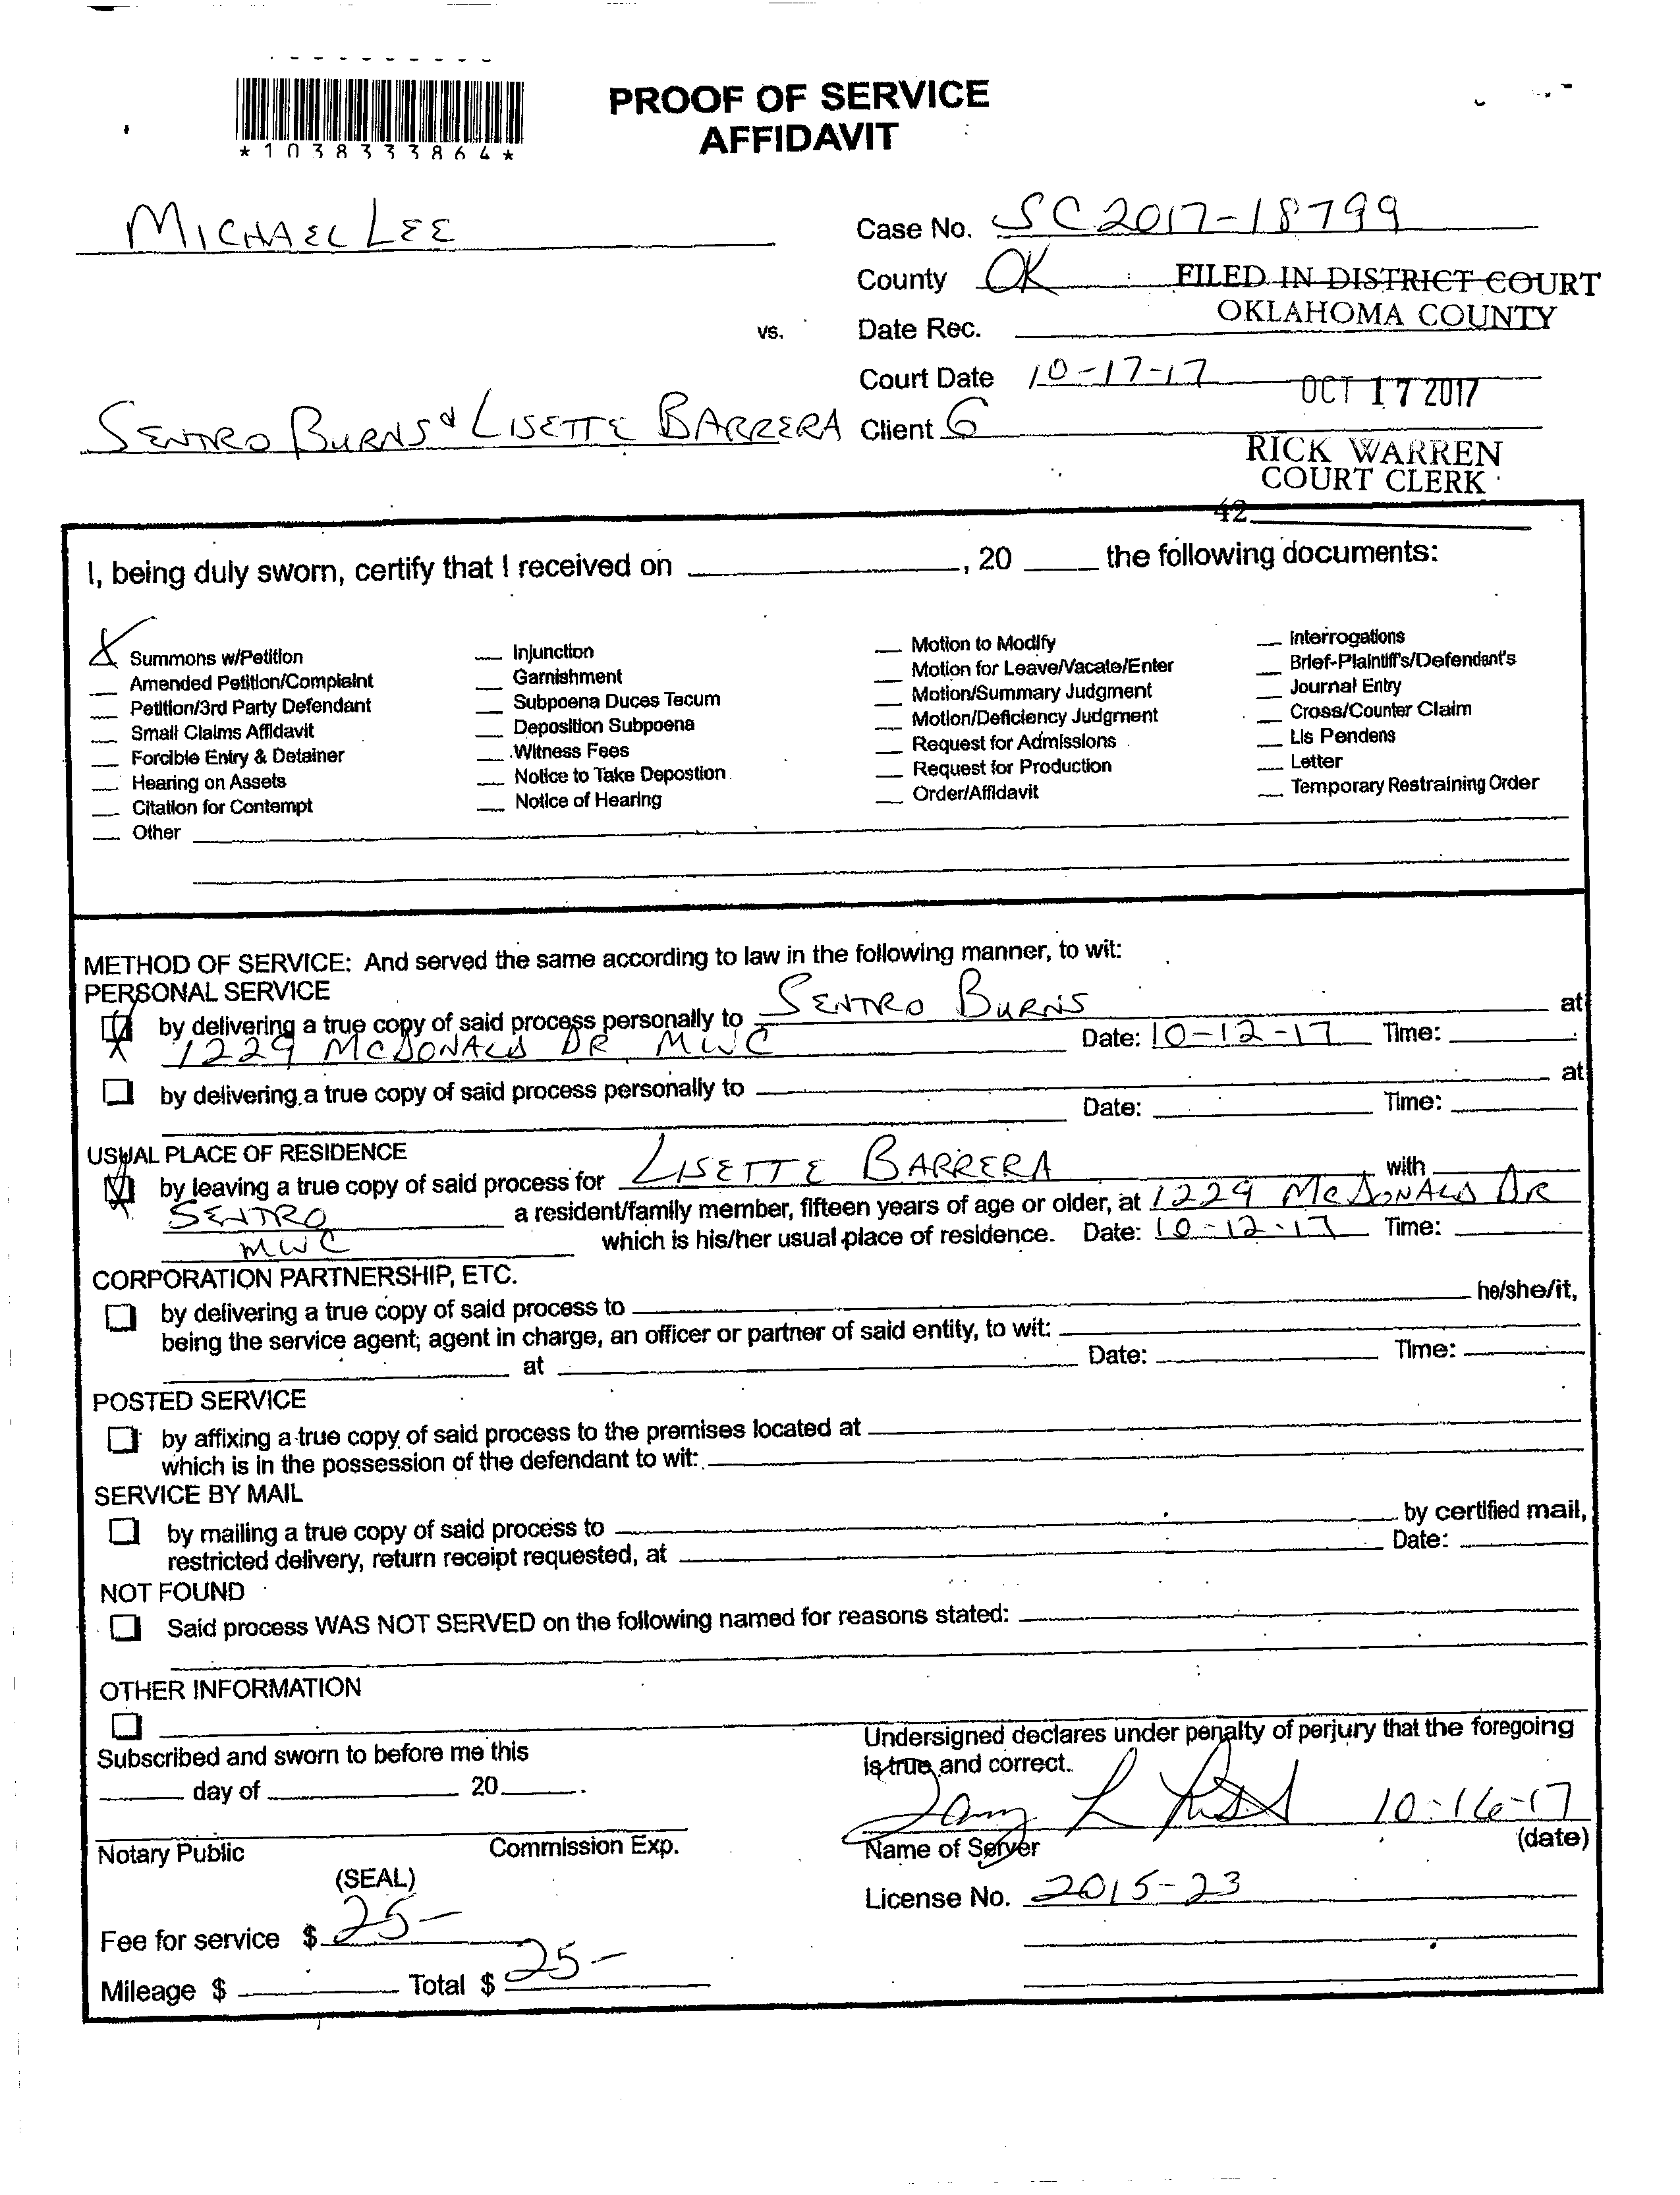 *1038333864*
PROOF OF SERVICE
AFFIDAVIT
MICHAEL LEE
Case No. SC2017-18799
County OK
FILED IN DISTRICT COURT
OKLAHOMA COUNTY
vs.
Date Rec.
Court Date 10-17-17
OCT 17 2017
SENTRO BURNS & LISETTE BARRERA
Client G
RICK WARREN
COURT CLERK
42
I, being duly sworn, certify that I received on ____, 20 ____ the following documents:
X Summons w/Petition
Amended Petition/Complaint
Petition/3rd Party Defendant
Small Claims Affidavit
Forcible Entry & Detainer
Hearing on Assets
Citation for Contempt
Other
Injunction
Garnishment
Subpoena Duces Tecum
Deposition Subpoena
Witness Fees
Notice to Take Depostion
Notice of Hearing
Motion to Modify
Motion for Leave/Vacate/Enter
Motion/Summary Judgment
Motion/Deficiency Judgment
Request for Admissions
Request for Production
Order/Affidavit
Interrogations
Brief-Plaintiff's/Defendant's
Journal Entry
Cross/Counter Claim
Lis Pendens
Letter
Temporary Restraining Order
METHOD OF SERVICE: And served the same according to law in the following manner, to wit:
PERSONAL SERVICE
by delivering a true copy of said process personally to SENTRO BURNS at
1229 MCDONALD DR MWC Date: 10-12-17 Time:
by delivering a true copy of said process personally to ____ at
Date: ____ Time:
USUAL PLACE OF RESIDENCE
by leaving a true copy of said process for LISETTE BARRERA with
SENTRO a resident/family member, fifteen years of age or older, at 1229 MCDONALD DR
MWC which is his/her usual place of residence. Date: 10-12-17 Time:
CORPORATION PARTNERSHIP, ETC.
by delivering a true copy of said process to ____ he/she/it,
being the service agent; agent in charge, an officer or partner of said entity, to wit:
at ____ Date: ____ Time:
POSTED SERVICE
by affixing a true copy of said process to the premises located at
which is in the possession of the defendant to wit:
SERVICE BY MAIL
by mailing a true copy of said process to ____ by certified mail,
restricted delivery, return receipt requested, at ____ Date:
NOT FOUND
Said process WAS NOT SERVED on the following named for reasons stated:
OTHER INFORMATION
Undersigned declares under penalty of perjury that the foregoing
is true and correct.
Subscribed and sworn to before me this
day of ____ 20____.
10-16-17
Notary Public Commission Exp.
Name of Server (date)
(SEAL)
License No. 2015-23
Fee for service $ 25-
Mileage $ ____ Total $ 25-